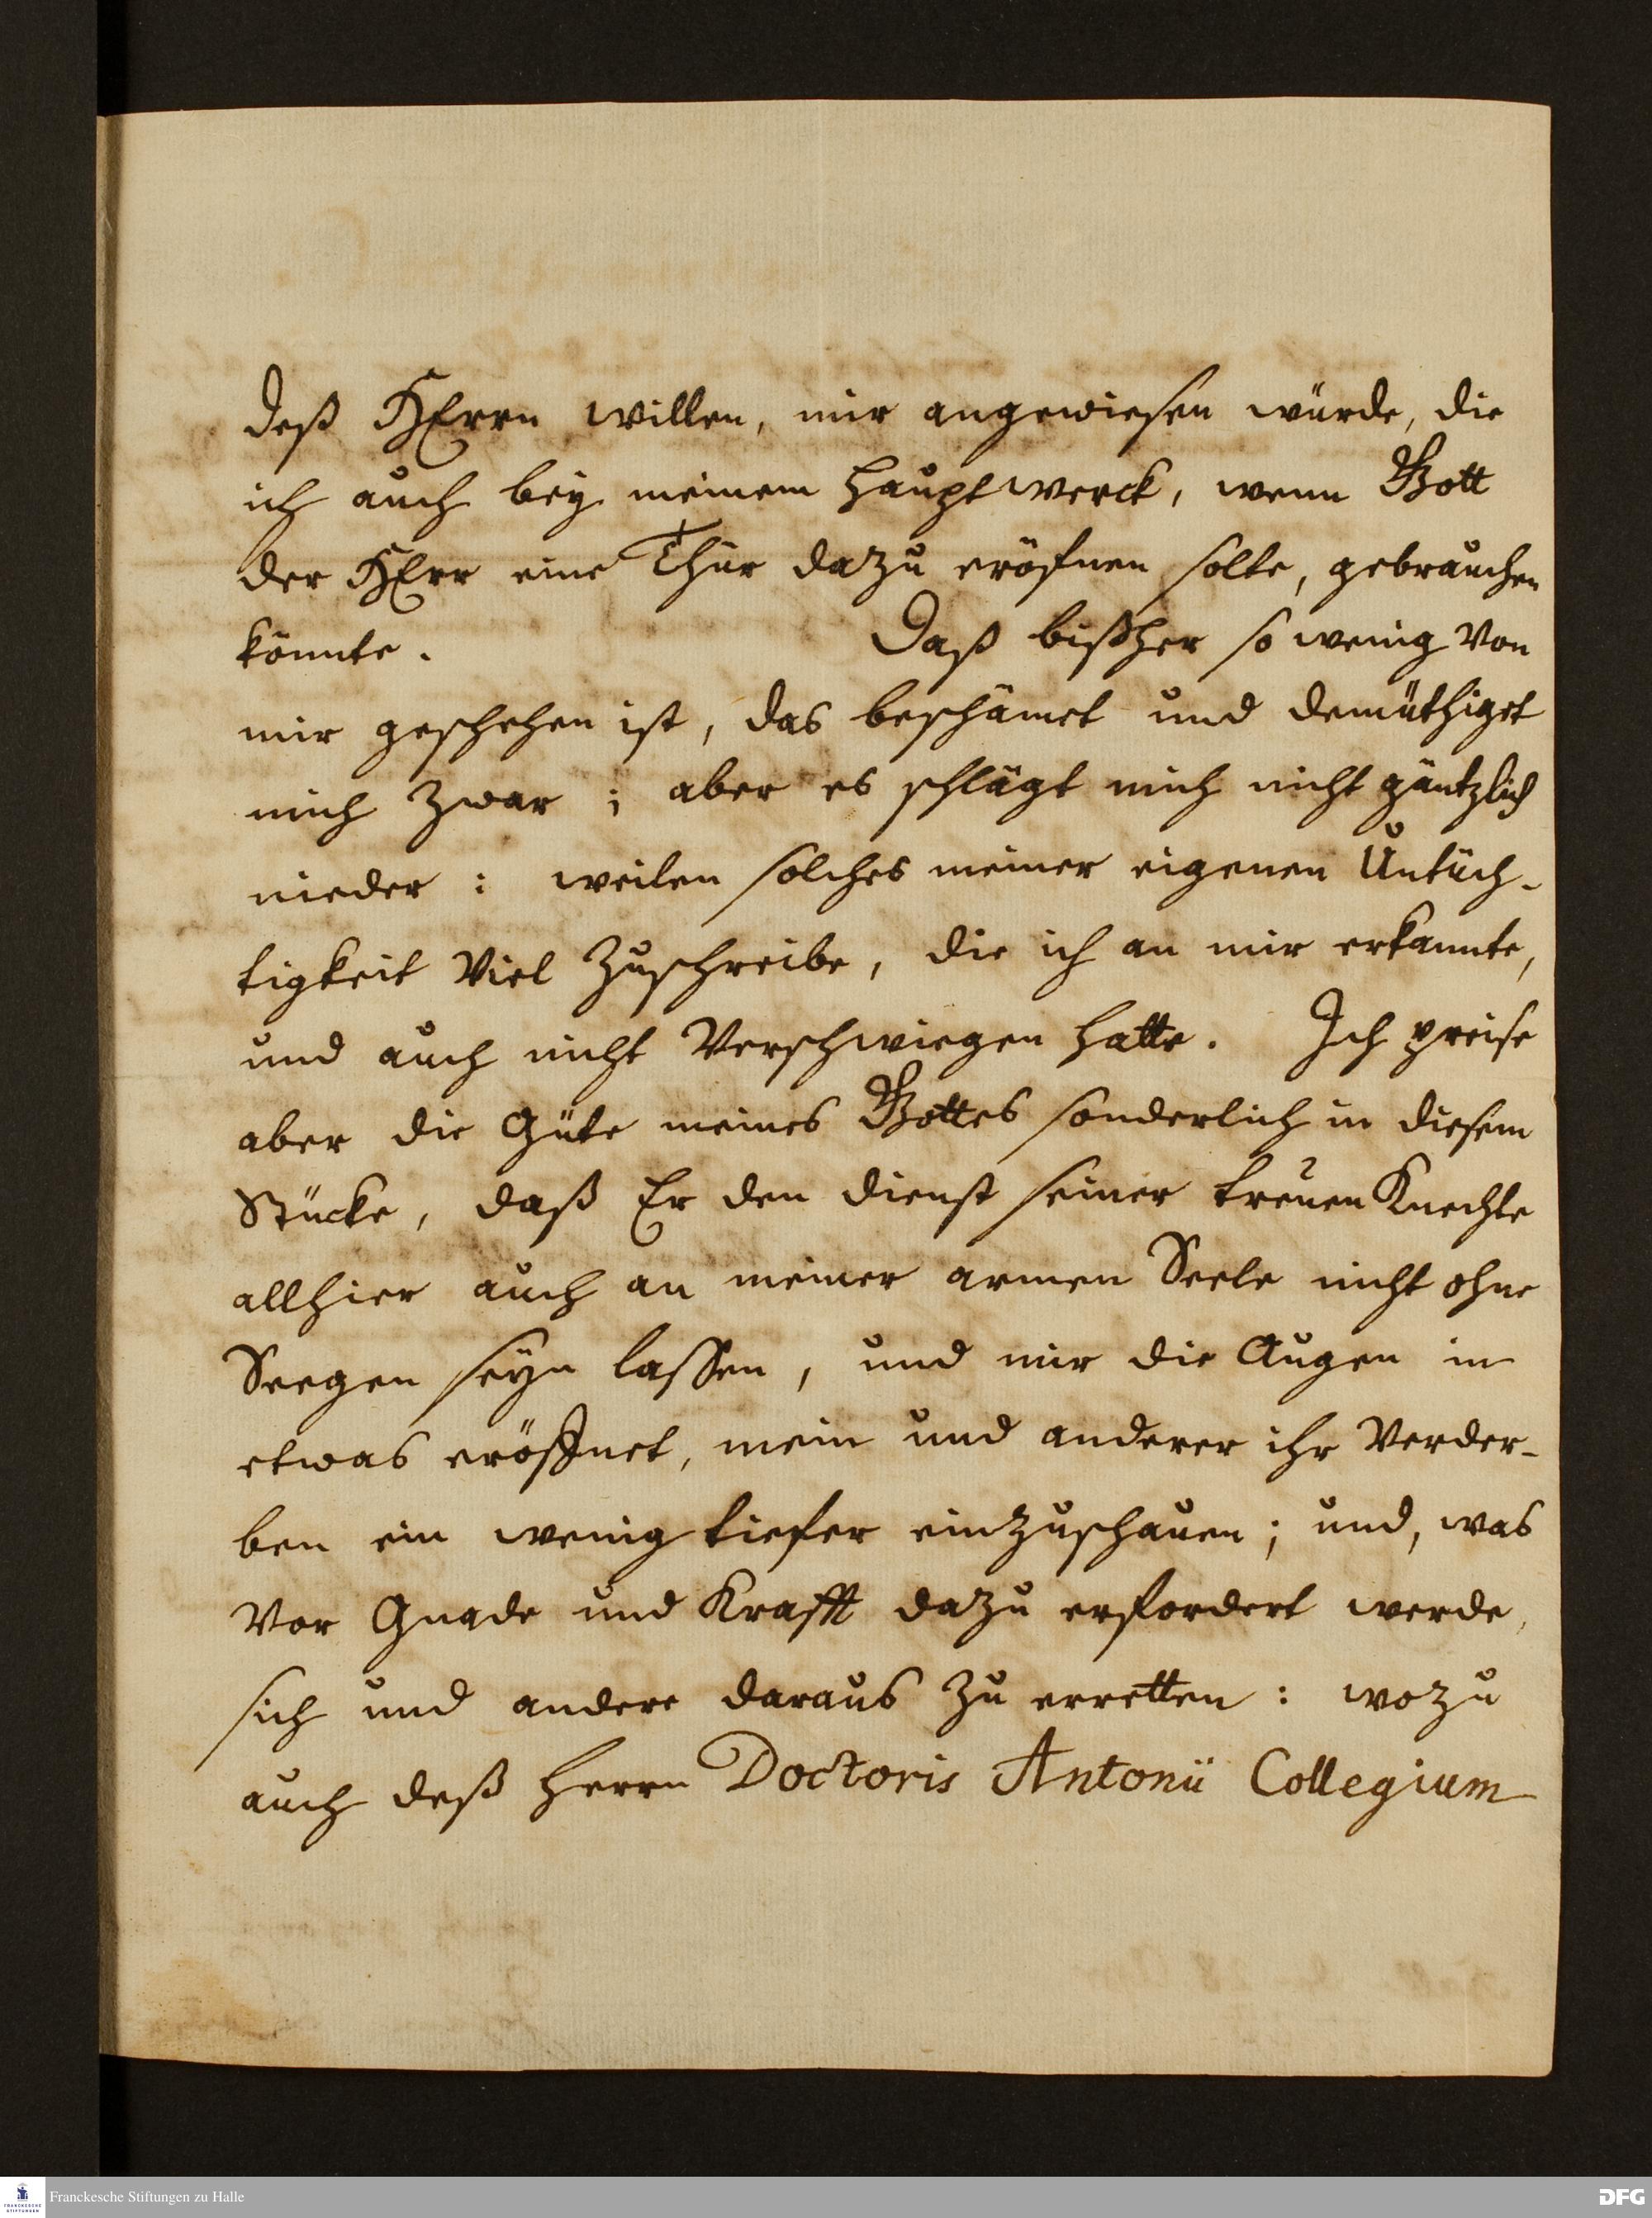 deß HErrn willen, mir angewiesen würde, die
ich auch bey meinem Hauptwerck, wenn GOtt
der HErr eine Thür dazu eröfnen solte, gebrauchen
könnte. Daß bißher so wenig von
mir geschehen ist, das beschämet und demüthiget
mich zwar; aber es schlägt mich nicht gäntzlich
nieder: weilen solches meiner eigenen Untüch-
tigkeit viel zuschreibe, die ich an mir erkannte,
und auch nicht verschwiegen hatte. Ich preise
aber die Güte meines GOttes sonderlich in diesem
Stücke, daß Er den dienst seiner treuen Knechte
allhier auch an meiner armen Seele nicht ohne
Seegen seyn lassen, und mir die Augen in
etwas eröffnet, mein und anderer ihr Verder-
ben ein wenig tiefer einzuschauen; und, was
vor Gnade und Krafft dazu erfordert werde,
sich und andere daraus zu erretten: wozu
auch deß Herrn Doctoris Antonii Collegium
Franckesche Stiftungen zu Halle
FRANCKESCHE
STIFTUNGEN
DFG